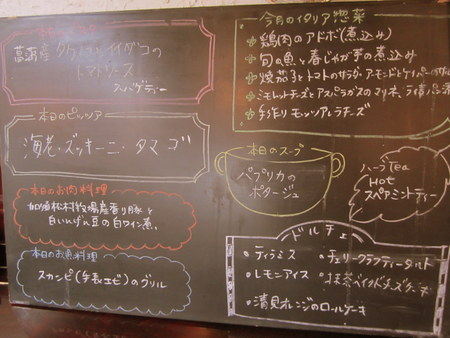 イイダコの
トマトソース
スパゲティー
本日のピッツア
海老・ズッキーニ・タマゴ
本日のお肉料理
白いんげん豆の白ワイン煮。
本日のお魚料理
スカンピ(手長エビ)のグリル
今月のイタリア惣菜
鶏肉のアドボ(煮込み)
旬の魚と春じゃが芋の煮込み
焼茄子とトマトのサラダ・アーモンドとケイパーの
ミモレットチーズとアスパラガスのマリネ、
手作りモッツアレラチーズ
本日のスープ
パプリカの
ポタージュ
ハーブTea
Hot
スペアミントティー
ドルチェ
・ティラミス
・レモンアイス
・清見オレンジのロールケーキ
・チェリークラフティータルト
・抹茶ベイクドチーズケーキ